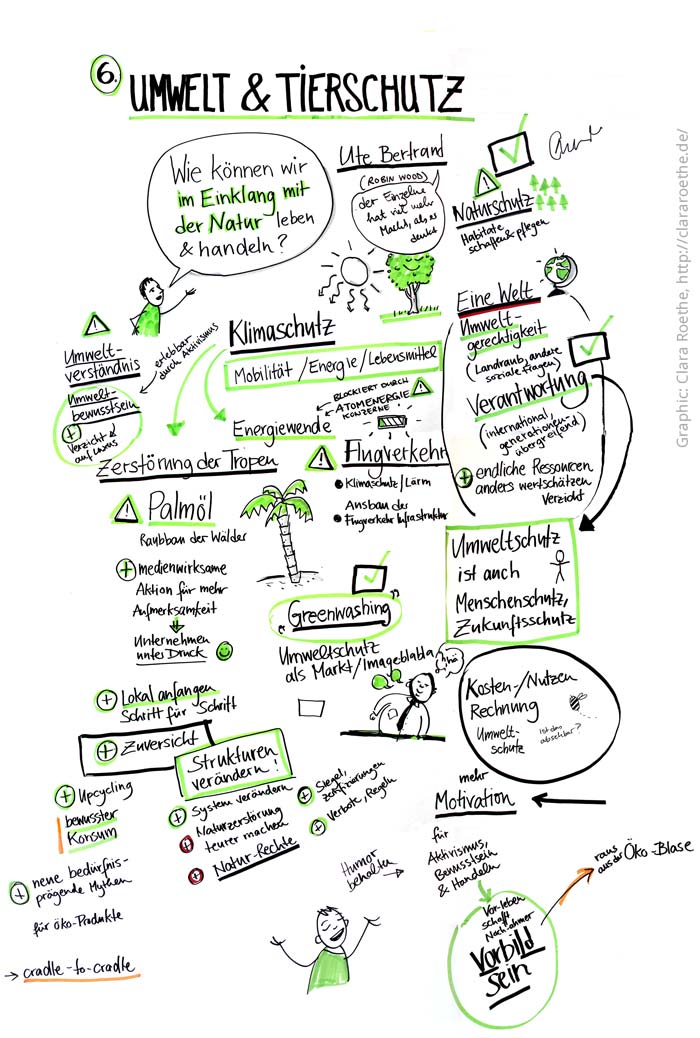 6.
UMWELT & TIERSCHUTZ
Wie können wir
im Einklang mit
der Natur leben
& handeln?
Ute Bertrand
(ROBIN WOOD)
der Einzelne
hat viel mehr
Macht, als er
denkt
Naturschutz
Habitate
schaffen & pflegen
Graphic: Clara Roethe, http://clararoethe.de/
Umwelt-
verständnis
erlebbar
durch Aktivismus
Umwelt-
bewusstsein
+ Verzicht &
auf was
Klimaschutz
Mobilität / Energie / Lebensmittel
BLOCKIERT DURCH
ATOMENERGIE
KONZERNE
Energiewende
Zerstörung der Tropen
Flugverkehr
Klimaschutz / Lärm
Ausbau der
Flugverkehr Infrastruktur
Eine Welt
Umwelt-
gerechtigkeit
(Landraub, andere
soziale Fragen)
Verantwortung
(international,
generationen-
übergreifend)
+ endliche Ressourcen
anders wertschätzen
Verzicht
Palmöl
Raubbau der Wälder
+ medienwirksame
Aktion für mehr
Aufmerksamkeit
Unternehmen
unter Druck
Umweltschutz
ist auch
Menschenschutz,
Zukunftsschutz
"Greenwashing"
Umweltschutz
als Markt / Imageblabla
hä
Kosten-/Nutzen
Rechnung
Umwelt-
schutz
ist das
absehbar?
+ Lokal anfangen
Schritt für Schritt
+ Zuversicht
Strukturen
verändern!
+ System verändern
+ Naturzerstörung
teurer machen
+ Natur-Rechte
+ Siegel,
Zertifizierungen
+ Verbote, Regeln
+ Upcycling
bewusster
Konsum
+ neue bedürfnis-
prägende Mythen
für öko-Produkte
→ cradle-to-cradle
mehr
Motivation
für
Aktivismus,
Bewusstsein
& Handeln
Humor
behalten
→
Vor-leben
schafft
Nach-ahmer
Vorbild
sein
raus
aus der Öko-Blase